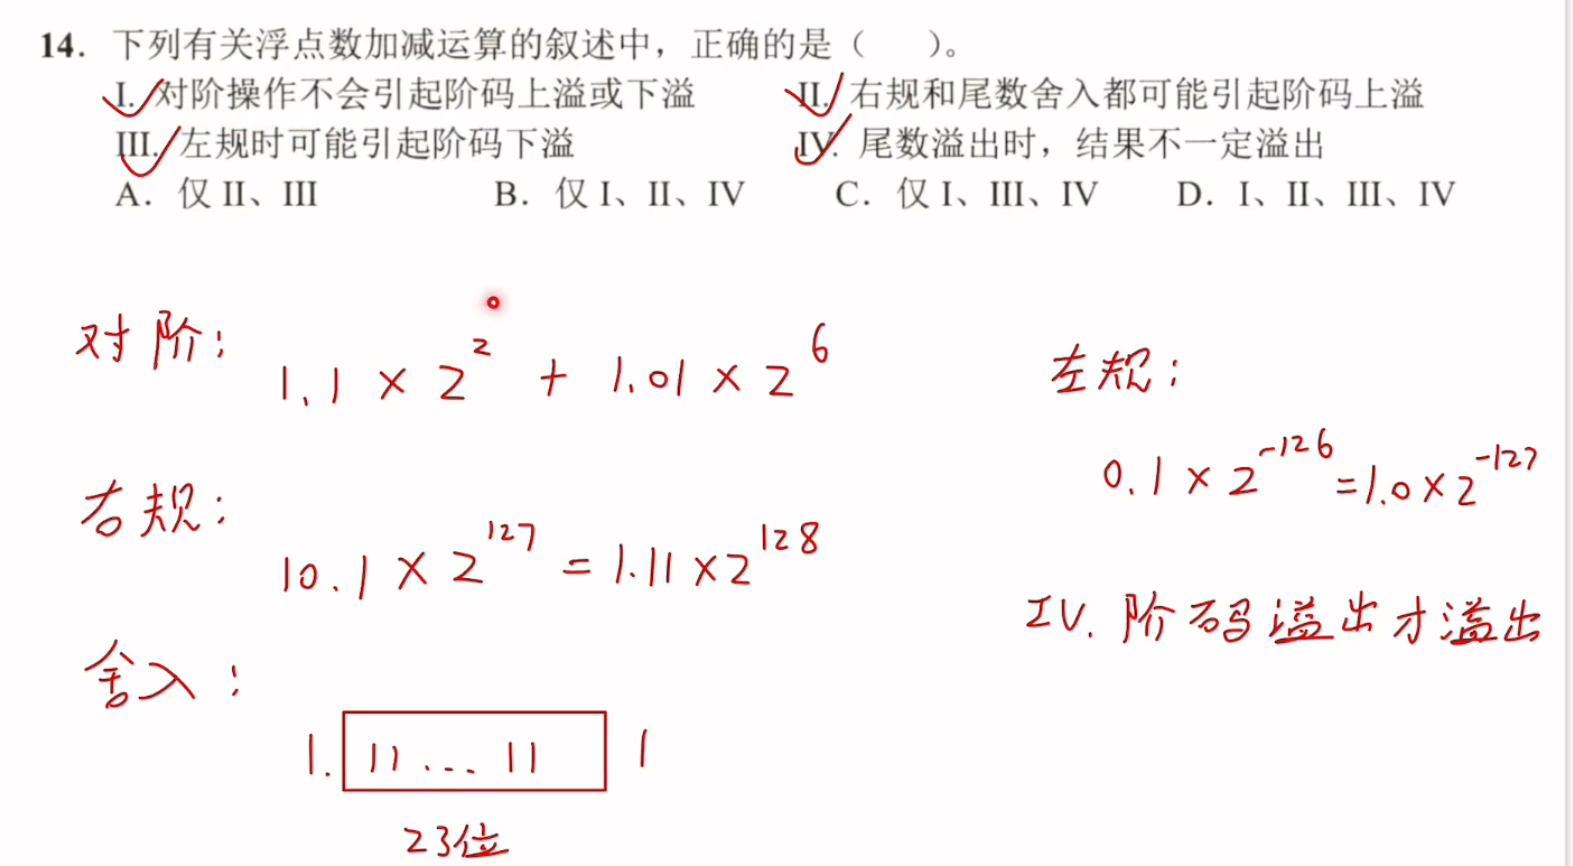 14. 下列有关浮点数加减运算的叙述中，正确的是（ ）。
I. 对阶操作不会引起阶码上溢或下溢 II. 右规和尾数舍入都可能引起阶码上溢
III. 左规时可能引起阶码下溢 IV. 尾数溢出时，结果不一定溢出
A. 仅 II、III B. 仅 I、II、IV C. 仅 I、III、IV D. I、II、III、IV
对阶：
1.1 × 2^2 + 1.01 × 2^6
左规：
0.1 × 2^-126 = 1.0 × 2^-127
右规：
10.1 × 2^127 = 1.11 × 2^128
IV. 阶码溢出才溢出
舍入：
1. 11 ... 11 1
23位